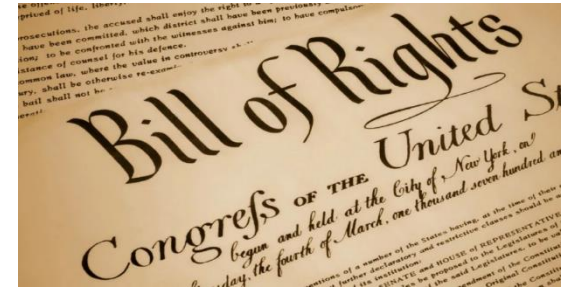 prived of life, liberty,
prosecutions, the accused shall enjoy the right to a
have been committed, which district shall have been previously
ion; to be confronted with the witnesses against him; to have compulsory
istance of counsel for his defence.
ommon law, where the value in controversy shall
ury, shall be otherwise re-exam
bail shall not be
Bill of Rights
Congreſs OF THE United St
begun and held at the City of New York, on
day, the fourth of March, one thousand seven hundred an
entions of a number of the States having, at the time of their
further declaratory and restrictive clauses should be
its institution:
SENATE and HOUSE of REPRESENTATIVE
be proposed to the Legislatures of
the said Legislatures, to be
endment of the Constitut
Original Constitut